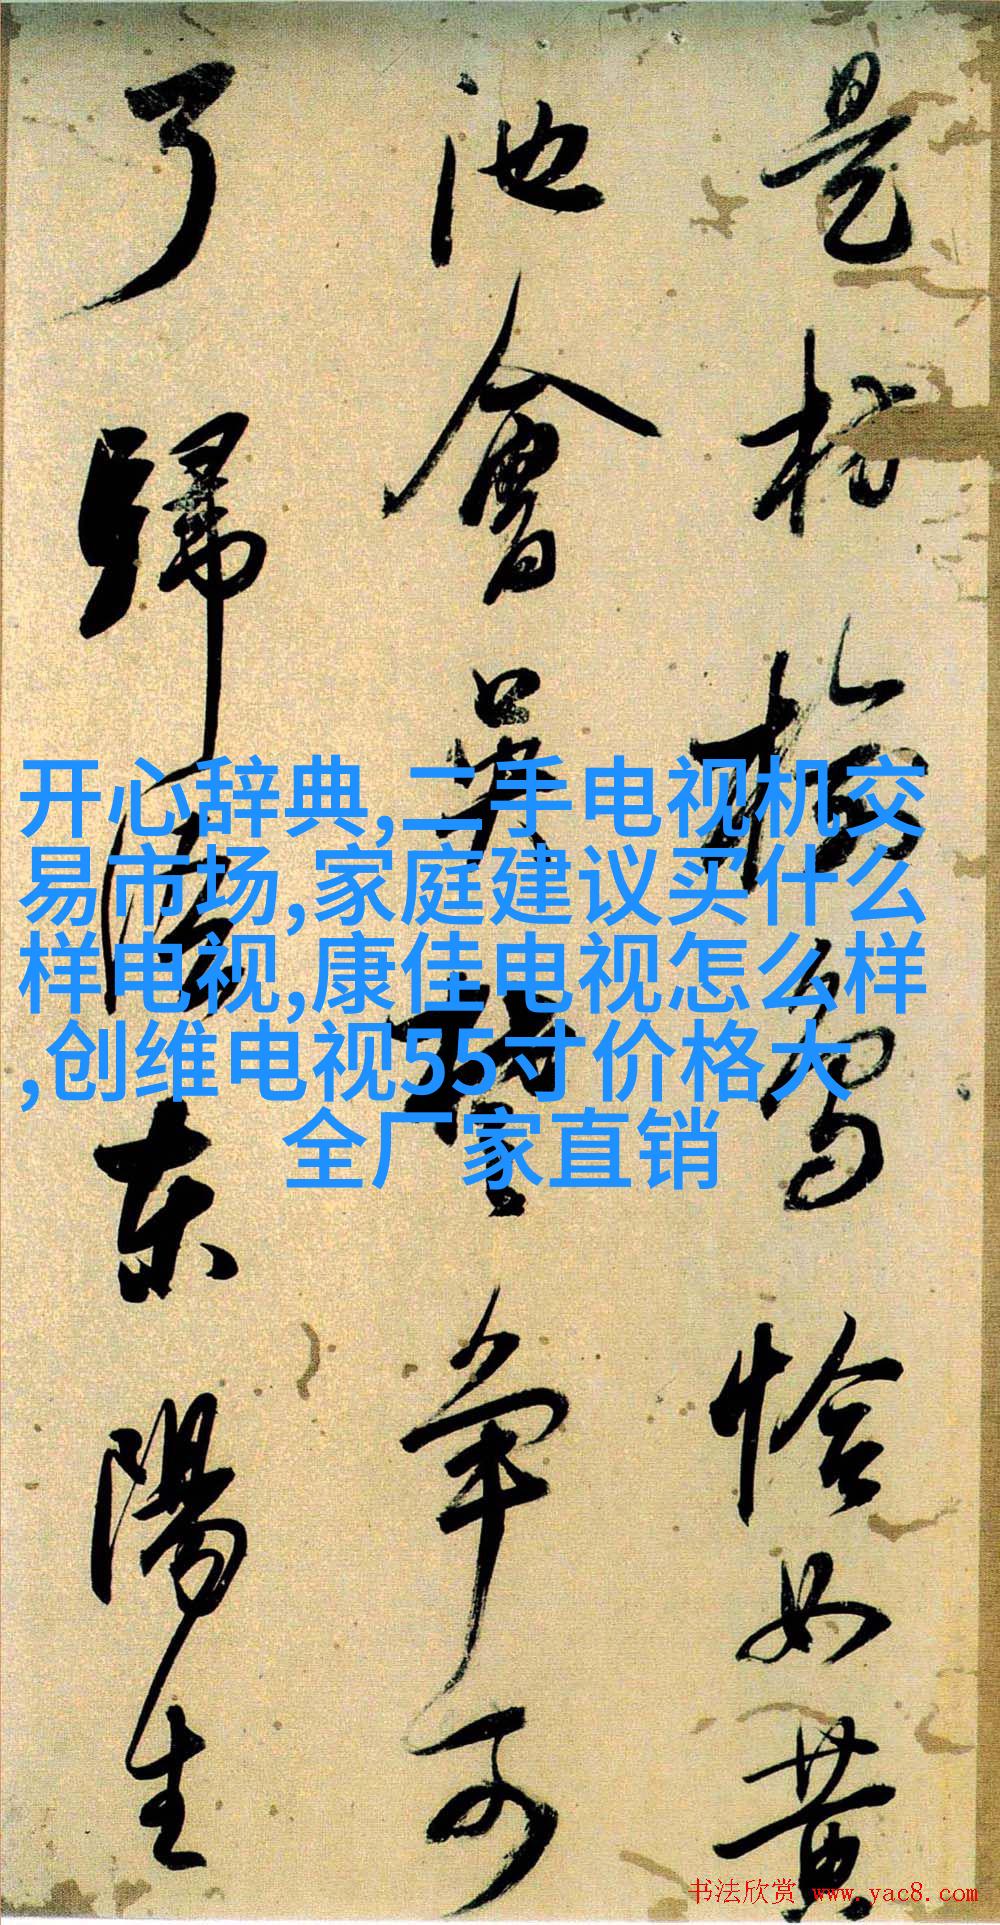 是枋榆恰如黄
池會争可
歸东陽生
开心辞典,二手电视机交
易市场,家庭建议买什么
样电视,康佳电视怎么样
,创维电视55寸价格大
全厂家直销
书法欣赏 www.yac8.com